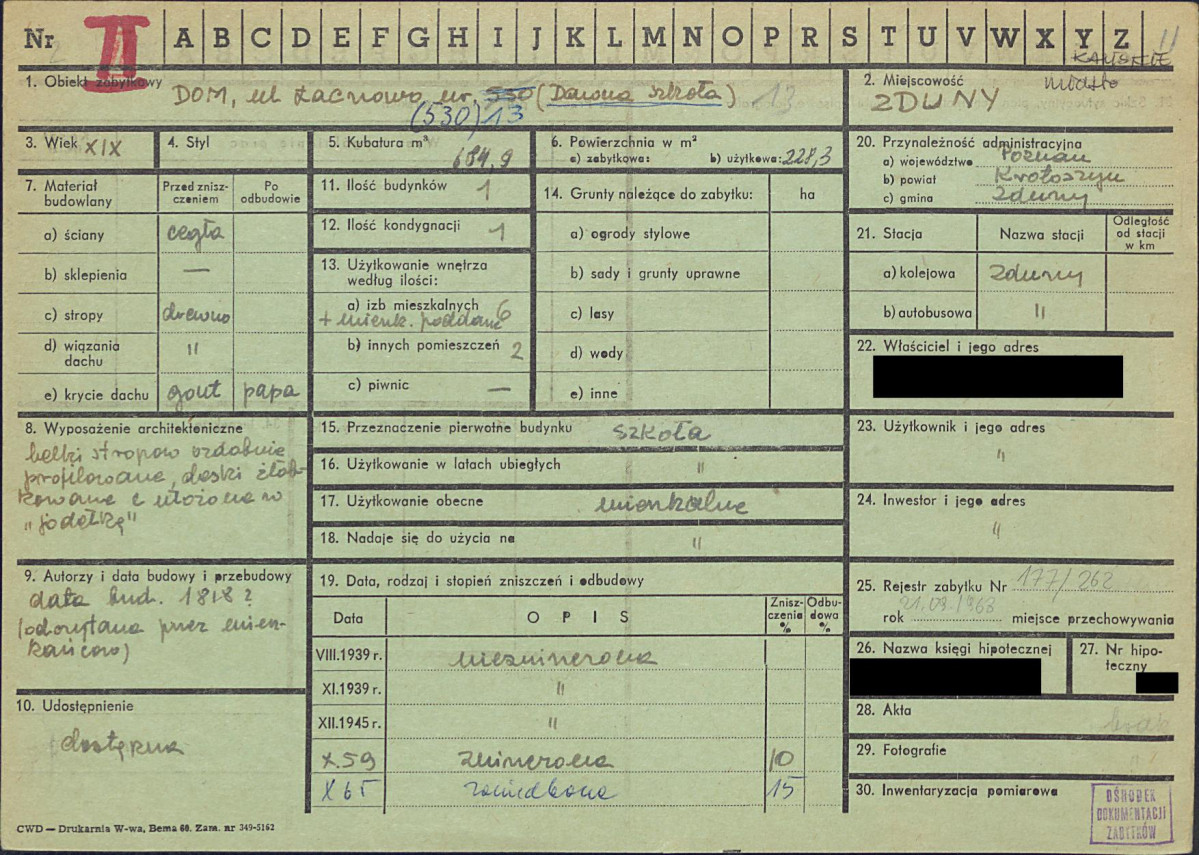 Nr II A B C D E F G H I J K L M N O P R S T U V W X Y Z 11
1. Obiekt zabytkowy
DOM, ul. Łacnowa nr. 530 (Dawna szkoła) 13
(530) 13
2. Miejscowość
miasto
ZDUNY
3. Wiek XIX
4. Styl
5. Kubatura m³
684,9
6. Powierzchnia w m²
a) zabytkowa: b) użytkowa: 228,3
20. Przynależność administracyjna
a) województwo Poznań
b) powiat Krotoszyn
c) gmina Zduny
7. Materiał budowlany
Przed zniszczeniem
Po odbudowie
a) ściany cegła
b) sklepienia —
c) stropy drewno
d) wiązania dachu "
e) krycie dachu gont papa
11. Ilość budynków 1
12. Ilość kondygnacji 1
13. Użytkowanie wnętrza
według ilości:
a) izb mieszkalnych 6
+ mieszk. poddasze
b) innych pomieszczeń 2
c) piwnic —
14. Grunty należące do zabytku: ha
a) ogrody stylowe
b) sady i grunty uprawne
c) lasy
d) wody
e) inne
21. Stacja
Nazwa stacji
Odległość
od stacji
w km
a) kolejowa Zduny
b) autobusowa "
22. Właściciel i jego adres
8. Wyposażenie architektoniczne
belki stropów ozdobnie
profilowane, deski żłob-
kowane i ułożone w
"jodełkę"
15. Przeznaczenie pierwotne budynku szkoła
16. Użytkowanie w latach ubiegłych "
17. Użytkowanie obecne mieszkalne
18. Nadaje się do użycia na "
23. Użytkownik i jego adres
"
24. Inwestor i jego adres
"
9. Autorzy i data budowy i przebudowy
data bud. 1818?
(odczytana przez miesz-
kańców)
10. Udostępnienie
dostępna
19. Data, rodzaj i stopień zniszczeń i odbudowy
Data
OPIS
Znisz-
czenia
%
Odbu-
dowa
%
VIII.1939 r. niezniszczona
XI.1939 r. "
XII.1945 r. "
X.59 zniszczona 10
X 65 zaniedbana 15
25. Rejestr zabytku Nr 177/262
rok 21.09.1963 miejsce przechowywania
26. Nazwa księgi hipotecznej
27. Nr hipo-
teczny
28. Akta brak
29. Fotografie "
30. Inwentaryzacja pomiarowa
OŚRODEK
DOKUMENTACJI
ZABYTKÓW
CWD — Drukarnia W-wa, Bema 60. Zam. nr 349-5162